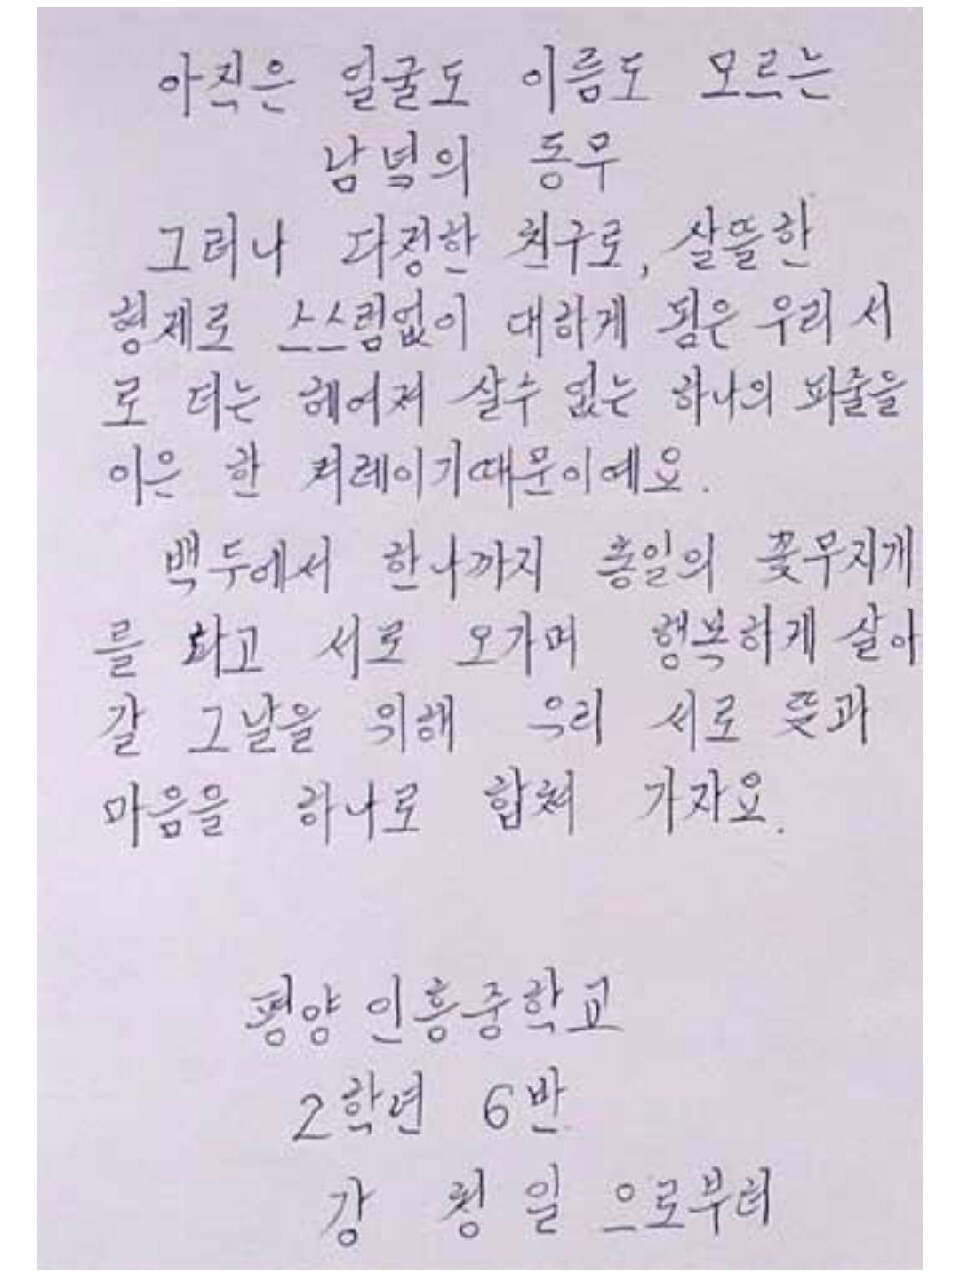 아직은 얼굴도 이름도 모르는
남녘의 동무
그러나 다정한 친구로, 살뜰한
형제로 스스럼없이 대하게 됨은 우리 서
로 더는 헤어져 살수 없는 하나의 피줄을
이은 한 겨레이기때문이예요.
백두에서 한나까지 통일의 꽃무지개
를 타고 서로 오가며 행복하게 살아
갈 그날을 위해 우리 서로 뜻과
마음을 하나로 합쳐 가자요.
평양 인흥중학교
2학년 6반
강 일 으로부터